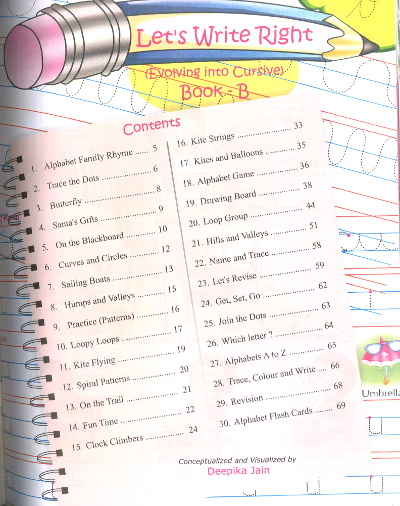 Let's Write Right
(Evolving into Cursive)
Book - B
Contents
1. Alphabet Family Rhyme ..... 5
2. Trace the Dots ..................... 6
3. Butterfly ............................. 8
4. Santa's Gifts ....................... 9
5. On the Blackboard ............ 10
6. Curves and Circles ............ 12
7. Sailing Boats ..................... 13
8. Humps and Valleys ........... 15
9. Practice (Patterns) ............. 16
10. Loopy Loops ..................... 17
11. Kite Flying ........................ 19
12. Spiral Patterns ................... 20
13. On the Trail ....................... 21
14. Fun Time ........................... 22
15. Clock Climbers .................. 24
16. Kite Strings ........................ 33
17. Kites and Balloons ............. 35
18. Alphabet Game .................. 36
19. Drawing Board .................. 38
20. Loop Group ....................... 44
21. Hills and Valleys ................ 51
22. Name and Trace ................. 58
23. Let's Revise ....................... 59
24. Get, Set, Go ....................... 62
25. Join the Dots ...................... 63
26. Which letter ? ..................... 64
27. Alphabets A to Z ................ 65
28. Trace, Colour and Write .... 66
29. Revision ............................. 68
30. Alphabet Flash Cards ........ 69
Umbrella
Conceptualized and Visualized by
Deepika Jain